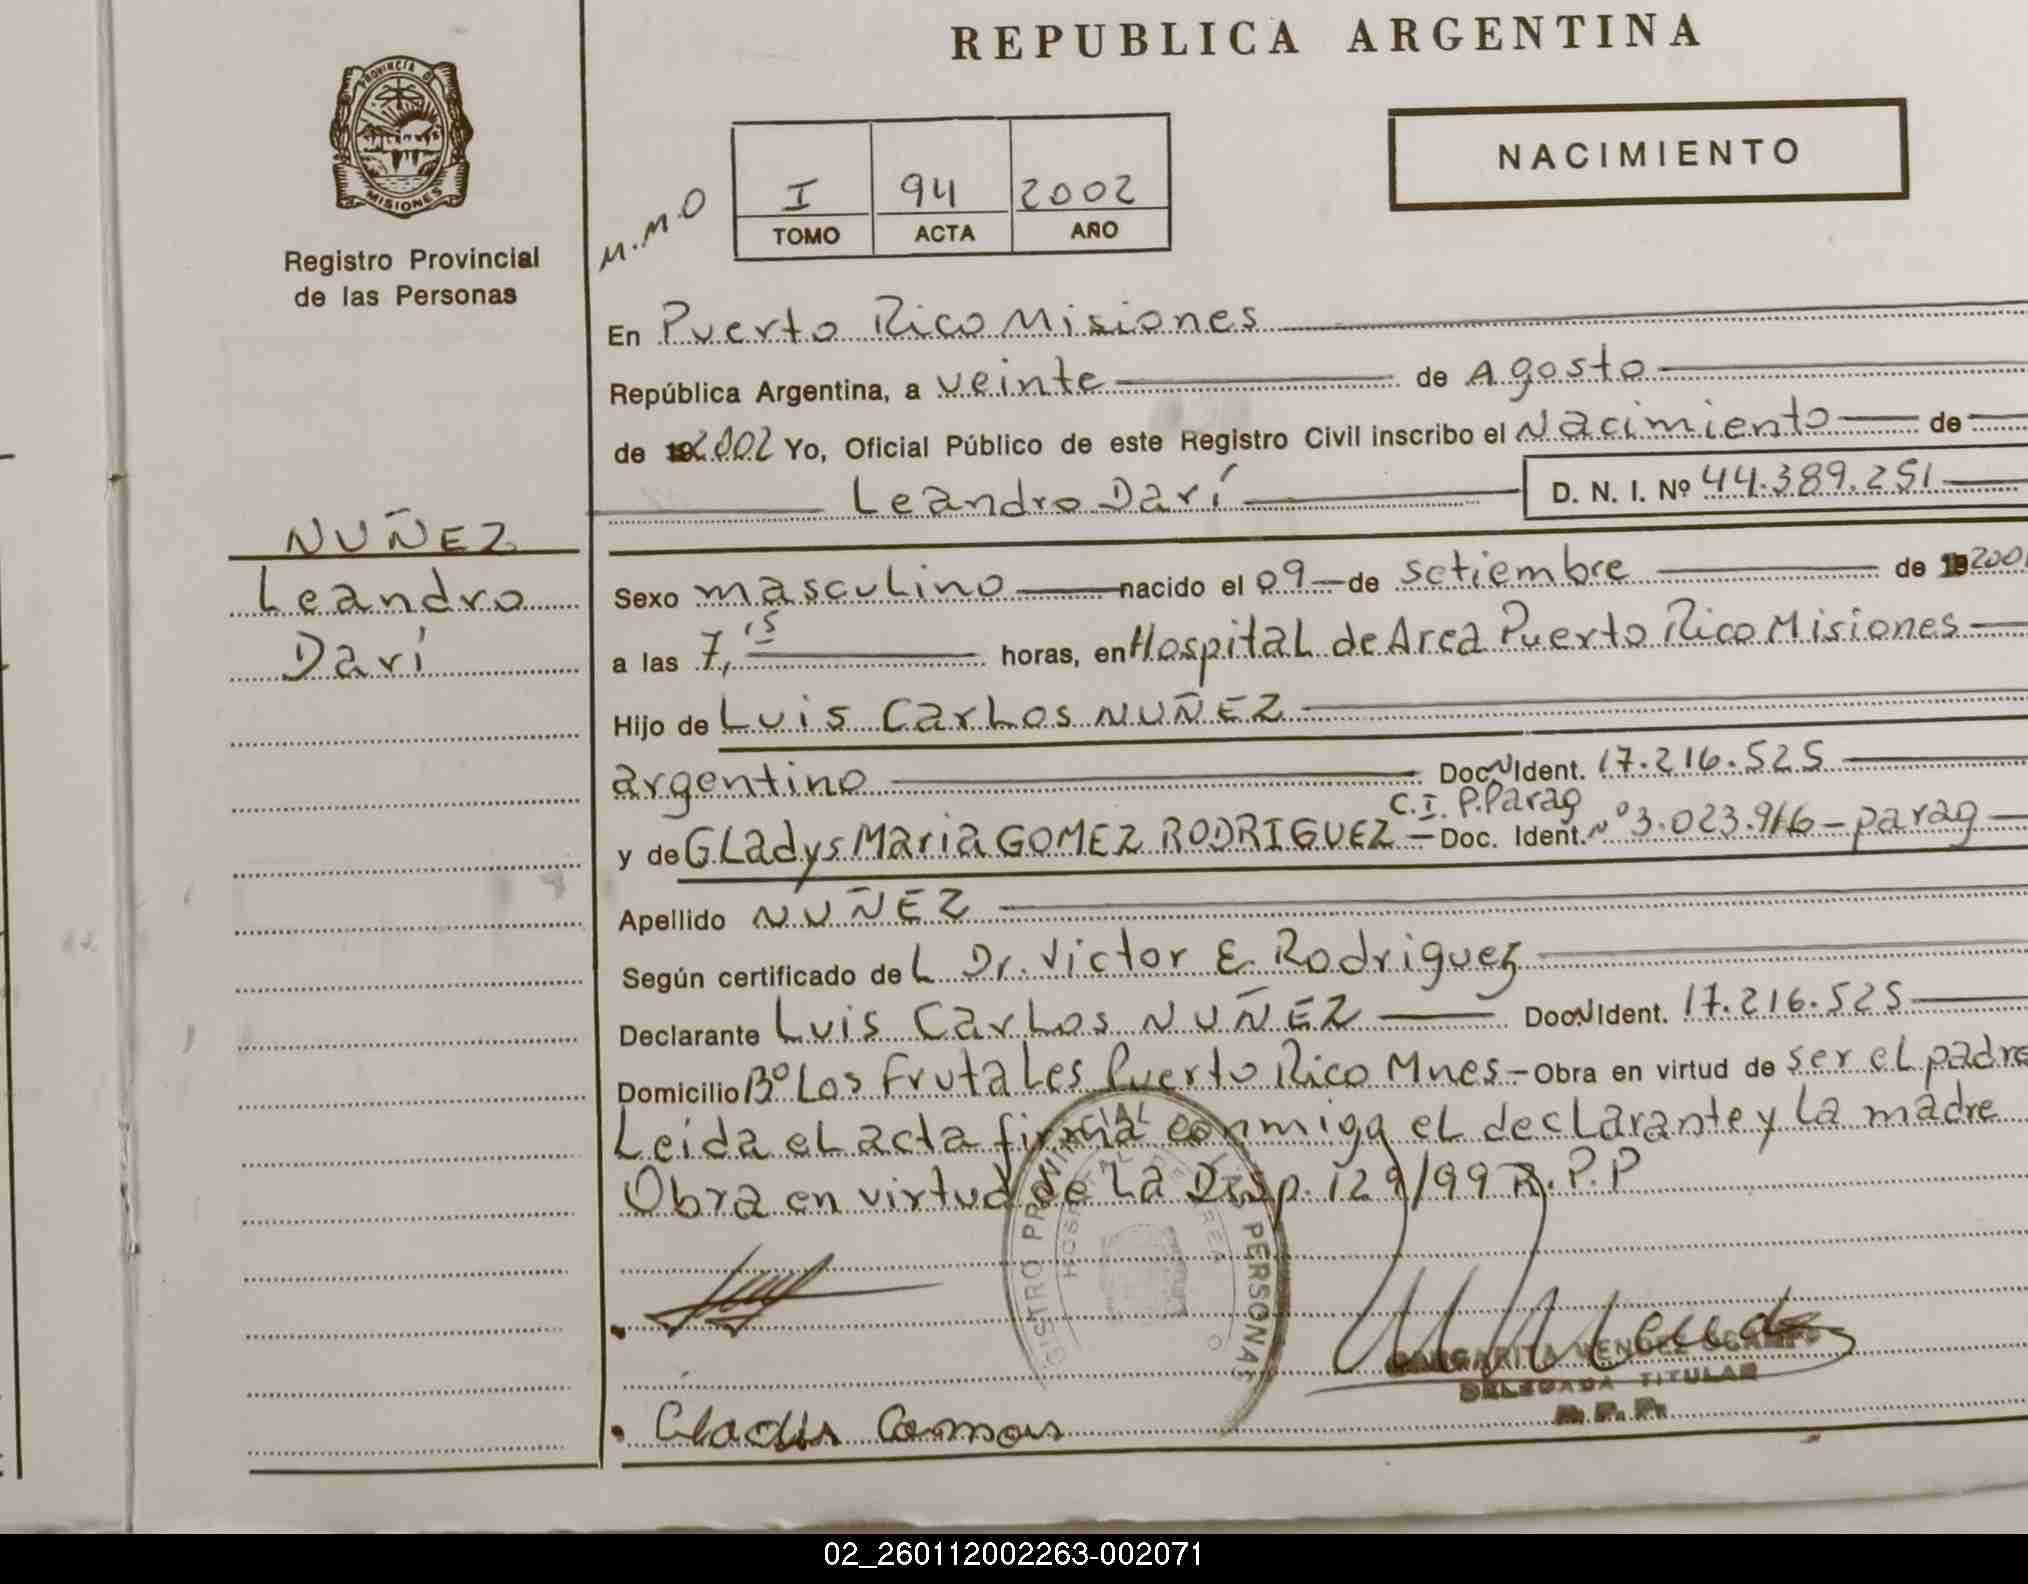 REPUBLICA ARGENTINA
PROVINCIA DE
MISIONES
Registro Provincial
de las Personas
NACIMIENTO
M.M.O
I 94 2002
TOMO ACTA AÑO
En Puerto Rico Misiones
República Argentina, a veinte de Agosto
de 192002 Yo, Oficial Público de este Registro Civil inscribo el Nacimiento de
Leandro Darí D. N. I. Nº 44.389.251
NUÑEZ
Leandro
Darí
Sexo masculino nacido el 09 de setiembre de 192001
a las 7,15 horas, en Hospital de Area Puerto Rico Misiones
Hijo de Luis Carlos NUÑEZ
argentino Doc. N Ident. 17.216.525
C.I. P.Parag
y de Gladys Maria GOMEZ RODRIGUEZ - Doc. Ident. Nº 3.023.916 - parag
Apellido NUÑEZ
Según certificado de L Dr. Victor E. Rodriguez
Declarante Luis Carlos NUÑEZ Doc. N Ident. 17.216.525
Domicilio Bº Los Frutales Puerto Rico Mnes - Obra en virtud de ser el padre
Leida el acta firma conmigo el declarante y la madre
Obra en virtud de La Disp. 129/99 R.P.P
PERSONAS
MARGARITA MENDEZ OCAMPO
DELEGADA TITULAR
R. P. P.
02_260112002263-002071